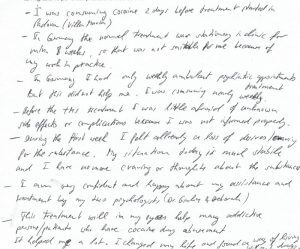 - I was consuming cocaine 2 days before treatment started in
Padova (Villa Maria)
- In Germany the normal treatment was stationary in clinic for
8 weeks, so that was not suitable for me because of
my work in practice.
- In Germany I had only weekly ambulant psychiatric appointments
But this did not help me. I was consuming nearly weekly
treatment
- Before the this treatment I was little afraid of unknown
side effects or complications because I was not informed properly.
- During the first week I felt already a loss of desires/craving
for the substance. My situation today is much stable
and I have no more craving or thoughts about the substance
- I am very confident and happy about my assistance and
treatment by my two psychologists (Dr & Deborah)
- This treatment will in my eyes help many addictive
persons/patients who have cocaine drug abusement
It helped me a lot. I changed my life and found a way of living